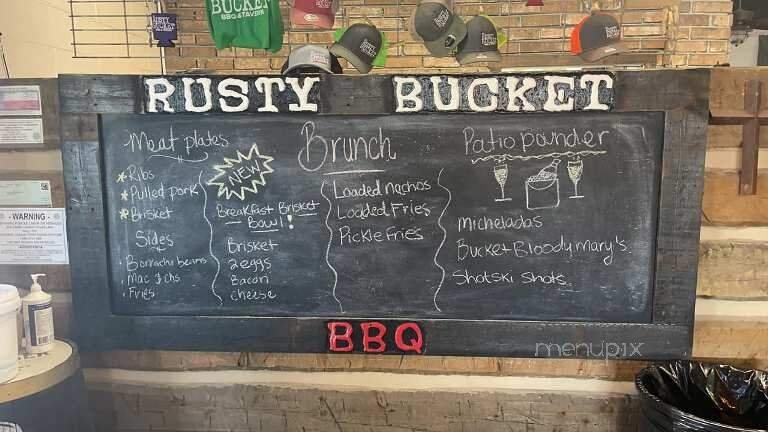 BUCKET
BBQ & TAVERN
RUSTY BUCKET
Meat plates
Ribs
Pulled pork
Brisket
Sides
Borracho beans
Mac & chs
Fries
NEW
Breakfast Brisket
Bowl!
Brisket
2 eggs
Bacon
cheese
Brunch
Loaded nachos
Loaded Fries
Pickle Fries
Patio pounder
Micheladas
Bucket Bloody mary's
Shotski shots
BBQ
WARNING
menupix